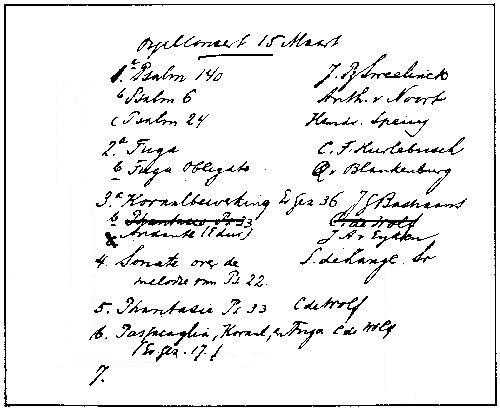 Orgelconcert 15 Maart
1. a Psalm 140 J. P. Sweelinck
b Psalm 6 Anth. v Noort
c Psalm 24 Hendr. Speuy
2. a Fuga C. F. Hurlebusch
b Fuga Obligato Q. v Blankenburg
3. a Koraalbewerking Ev Gez 36 J G Bastiaans
b Phantasie Ps 33 C. de Wolf
Andante (F dur) J A v Eyken
4. Sonate over de S. de Lange Sr
melodie van Ps 22.
5. Phantasie Ps 33 C de Wolf
6. Passacaglia, Koraal, en Fuga C de Wolf
(Ev. gez. 17.)
7.